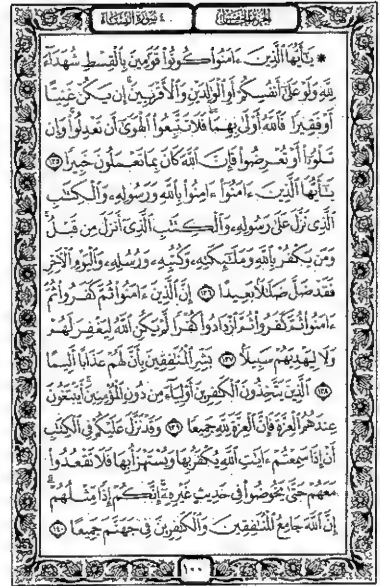 الجزء الخامس ٤ سورة النساء
۞ يَٰٓأَيُّهَا ٱلَّذِينَ ءَامَنُواْ كُونُواْ قَوَّٰمِينَ بِٱلْقِسْطِ شُهَدَآءَ
لِلَّهِ وَلَوْ عَلَىٰٓ أَنفُسِكُمْ أَوِ ٱلْوَٰلِدَيْنِ وَٱلْأَقْرَبِينَۚ إِن يَكُنْ غَنِيًّا
أَوْ فَقِيرًا فَٱللَّهُ أَوْلَىٰ بِهِمَاۖ فَلَا تَتَّبِعُواْ ٱلْهَوَىٰٓ أَن تَعْدِلُواْۚ وَإِن
تَلْوُۥٓاْ أَوْ تُعْرِضُواْ فَإِنَّ ٱللَّهَ كَانَ بِمَا تَعْمَلُونَ خَبِيرًا ١٣٥
يَٰٓأَيُّهَا ٱلَّذِينَ ءَامَنُوٓاْ ءَامِنُواْ بِٱللَّهِ وَرَسُولِهِۦ وَٱلْكِتَٰبِ
ٱلَّذِى نَزَّلَ عَلَىٰ رَسُولِهِۦ وَٱلْكِتَٰبِ ٱلَّذِىٓ أَنزَلَ مِن قَبْلُۚ
وَمَن يَكْفُرْ بِٱللَّهِ وَمَلَٰٓئِكَتِهِۦ وَكُتُبِهِۦ وَرُسُلِهِۦ وَٱلْيَوْمِ ٱلْءَاخِرِ
فَقَدْ ضَلَّ ضَلَٰلًۢا بَعِيدًا ١٣٦ إِنَّ ٱلَّذِينَ ءَامَنُواْ ثُمَّ كَفَرُواْ ثُمَّ
ءَامَنُواْ ثُمَّ كَفَرُواْ ثُمَّ ٱزْدَادُواْ كُفْرًا لَّمْ يَكُنِ ٱللَّهُ لِيَغْفِرَ لَهُمْ
وَلَا لِيَهْدِيَهُمْ سَبِيلًۢا ١٣٧ بَشِّرِ ٱلْمُنَٰفِقِينَ بِأَنَّ لَهُمْ عَذَابًا أَلِيمًا
١٣٨ ٱلَّذِينَ يَتَّخِذُونَ ٱلْكَٰفِرِينَ أَوْلِيَآءَ مِن دُونِ ٱلْمُؤْمِنِينَۚ أَيَبْتَغُونَ
عِندَهُمُ ٱلْعِزَّةَ فَإِنَّ ٱلْعِزَّةَ لِلَّهِ جَمِيعًا ١٣٩ وَقَدْ نَزَّلَ عَلَيْكُمْ فِى ٱلْكِتَٰبِ
أَنْ إِذَا سَمِعْتُمْ ءَايَٰتِ ٱللَّهِ يُكْفَرُ بِهَا وَيُسْتَهْزَأُ بِهَا فَلَا تَقْعُدُواْ
مَعَهُمْ حَتَّىٰ يَخُوضُواْ فِى حَدِيثٍ غَيْرِهِۦٓۚ إِنَّكُمْ إِذًا مِّثْلُهُمْۗ
إِنَّ ٱللَّهَ جَامِعُ ٱلْمُنَٰفِقِينَ وَٱلْكَٰفِرِينَ فِى جَهَنَّمَ جَمِيعًا ١٤٠
١٠٠